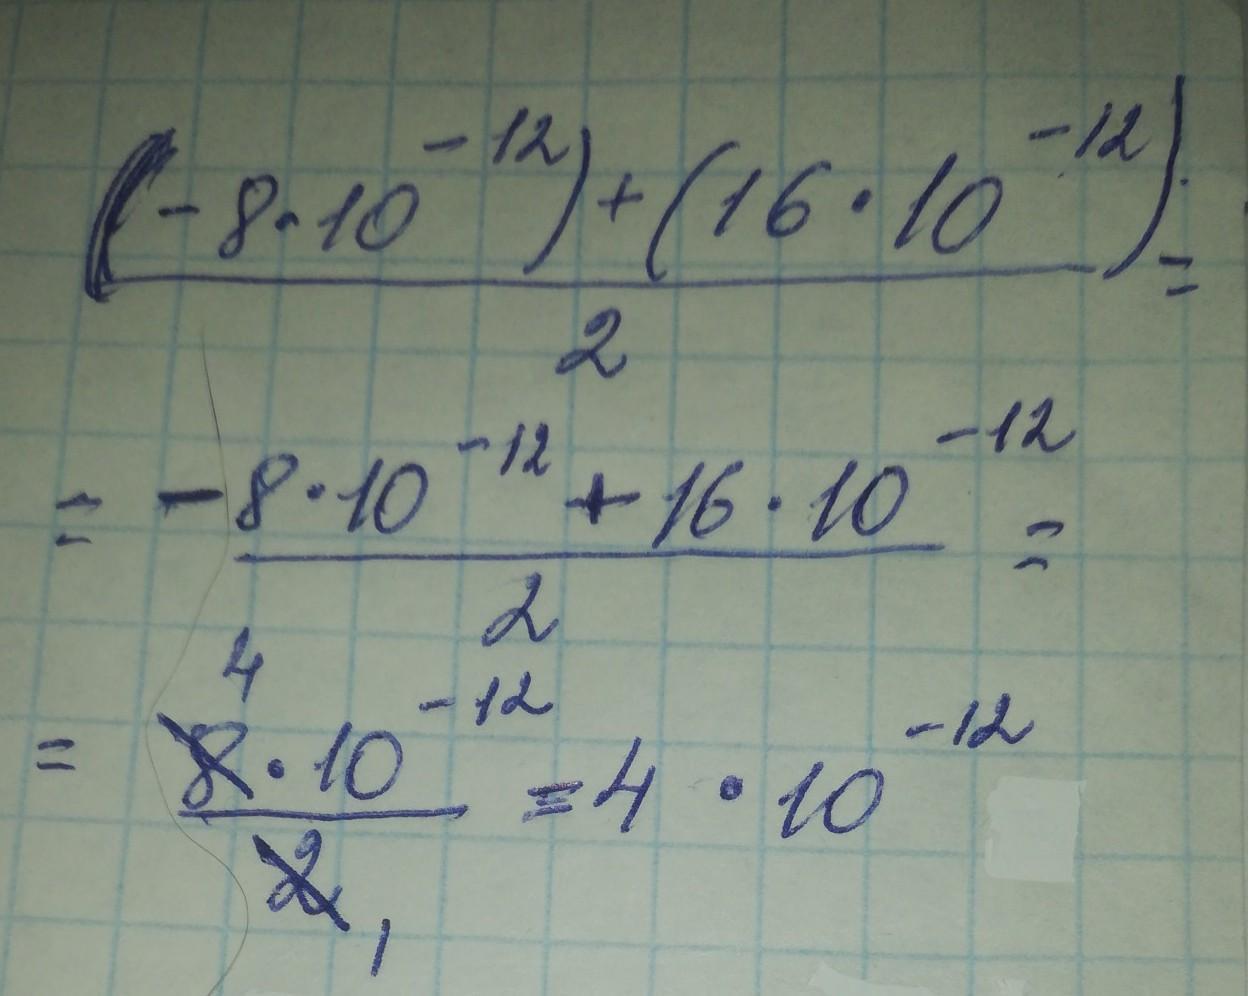 (-8·10⁻¹²)+(16·10⁻¹²)
=
2
= -8·10⁻¹² + 16·10⁻¹² =
2
4
= 8·10⁻¹² = 4·10⁻¹²
2 1